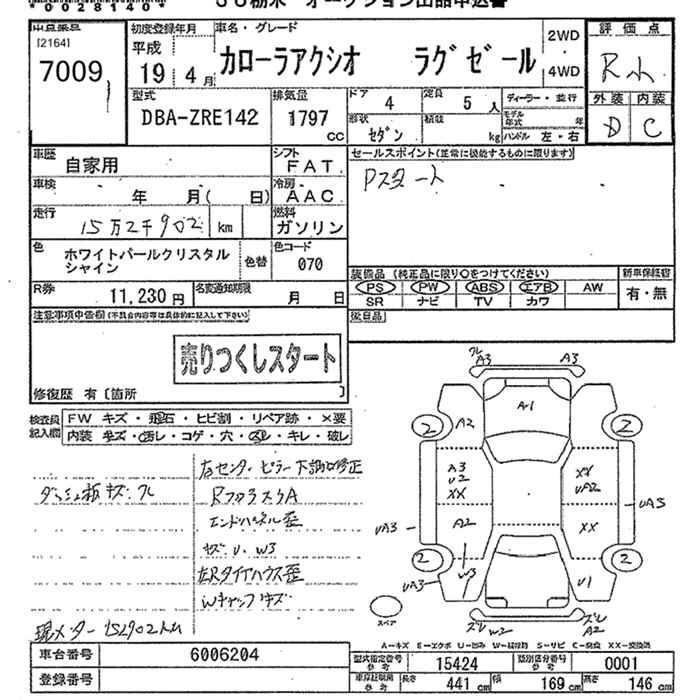 *00281401*
JU栃木 オークション出品申込書
出品番号
[2164]
7009
初度登録年月
平成
19年 4月
車名・グレード
カローラアクシオ ラグゼール
2WD
4WD
評価点
R
外装 内装
D C
型式
DBA-ZRE142
排気量
1797 CC
ドア 4
定員 5人
形状 セダン
積載 kg
ディーラー・並行
モデル年式 年
ハンドル 左・右
車歴 自家用
シフト FAT
セールスポイント(正常に機能するものに限ります)
Pスタート
車検 年 月( 日)
冷房 AAC
走行 15万2千902 km
燃料 ガソリン
色 ホワイトパールクリスタル
シャイン
色替
色コード 070
R券 11,230円
名変通知期限 月 日
装備品(純正品に限り○をつけてください)
PS PW ABS エアB AW
SR ナビ TV カワ
新車保証書
有・無
後日品
注意事項申告欄(不具合内容等は具体的に記入して下さい)
売りつくしスタート
修復歴 有〔箇所 〕
検査員
記入欄
FW キズ・飛石・ヒビ割・リペア跡・×要
内装 キズ・汚レ・コゲ・穴・スレ・キレ・破レ
右センターピラー下部修正
ダッシュ板キズ・
エンドパネル歪
キズ U. W3
左Rタイヤハウス歪
Wキャップキズ
現メーター152902km
A3 A3
A1
2 A2 2
A3
U2
XX
XX
UA2
A2 XX
UA3 UA3
2 2
UA3 W3 U1
スペア
ズレ W2 ズレ
A2
A=キズ E=エクボ U=凹み W=補修跡 S=サビ C=腐食 XX=交換済
車台番号 6006204
登録番号
型式指定番号 参考 15424
類別区分番号 参考 0001
車庫証明用 参考 長さ 441cm 幅 169cm 高さ 146cm